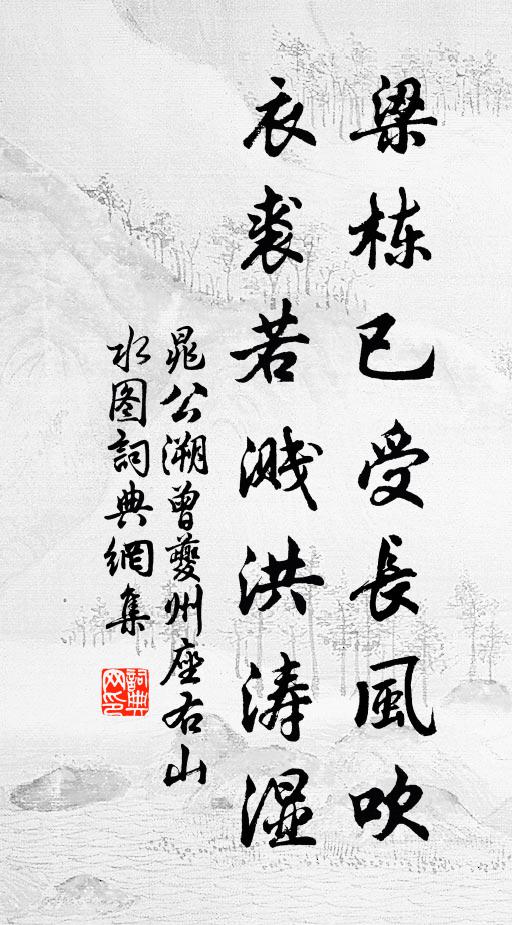 梁栋已受長風吹
衣裘若溅洪涛湿
晁公溯曾夔州座右山
水图詞典網集
詞典
网印